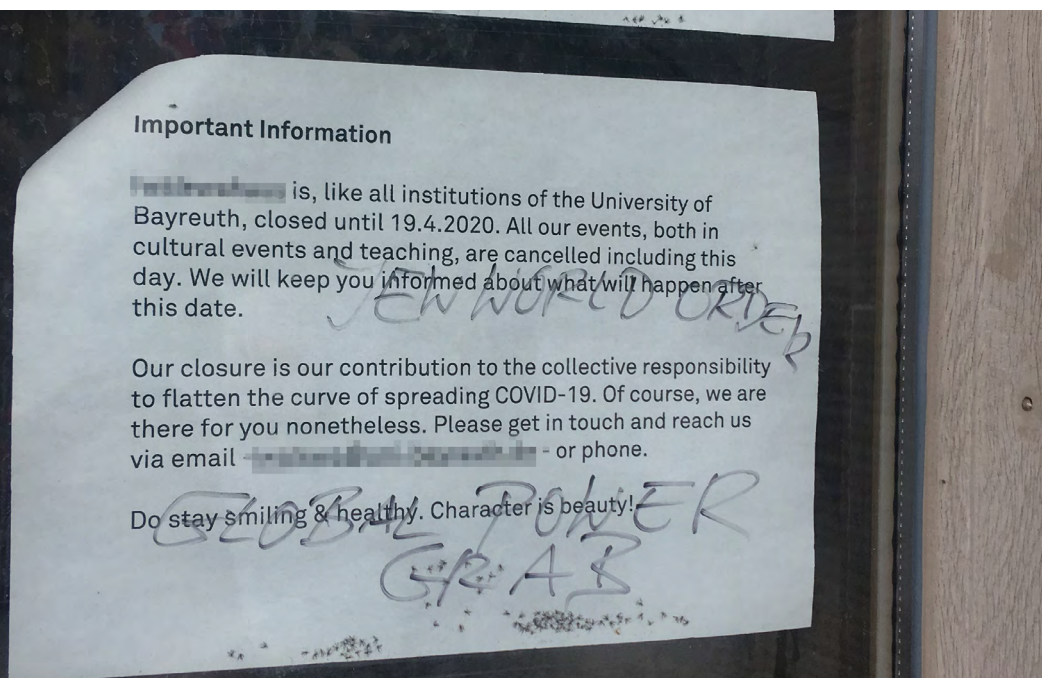 Important Information
is, like all institutions of the University of
Bayreuth, closed until 19.4.2020. All our events, both in
cultural events and teaching, are cancelled including this
day. We will keep you informed about what will happen after
this date.
JEW WORLD ORDER
Our closure is our contribution to the collective responsibility
to flatten the curve of spreading COVID-19. Of course, we are
there for you nonetheless. Please get in touch and reach us
via email - - or phone.
Do stay smiling & healthy. Character is beauty!
GLOBAL POWER
GRAB